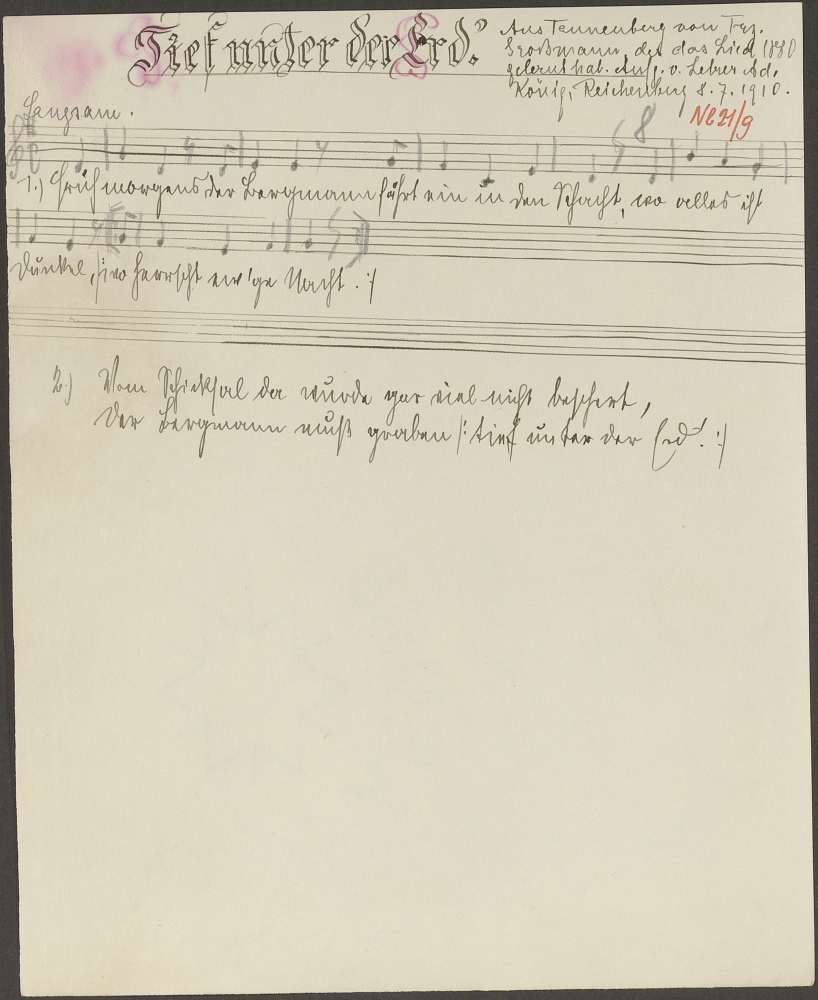 Tief unter der Erd.'
Aus Tannenberg von Frz.
Großmann, der das Lied 1880
gelernt hat. Aufg. v. Lehrer Ad.
König, Reichenberg 8.7.1910.
Langsam.
8
NB 21/9
1.) Früh morgens der Bergmann fährt ein in den Schacht, wo alles ist
Dunkel, /: wo herrscht ew'ge Nacht. :/
2.) Vom Schicksal da wurde gar viel nicht beschert,
Der Bergmann muß graben /: tief unter der Erd'. :/